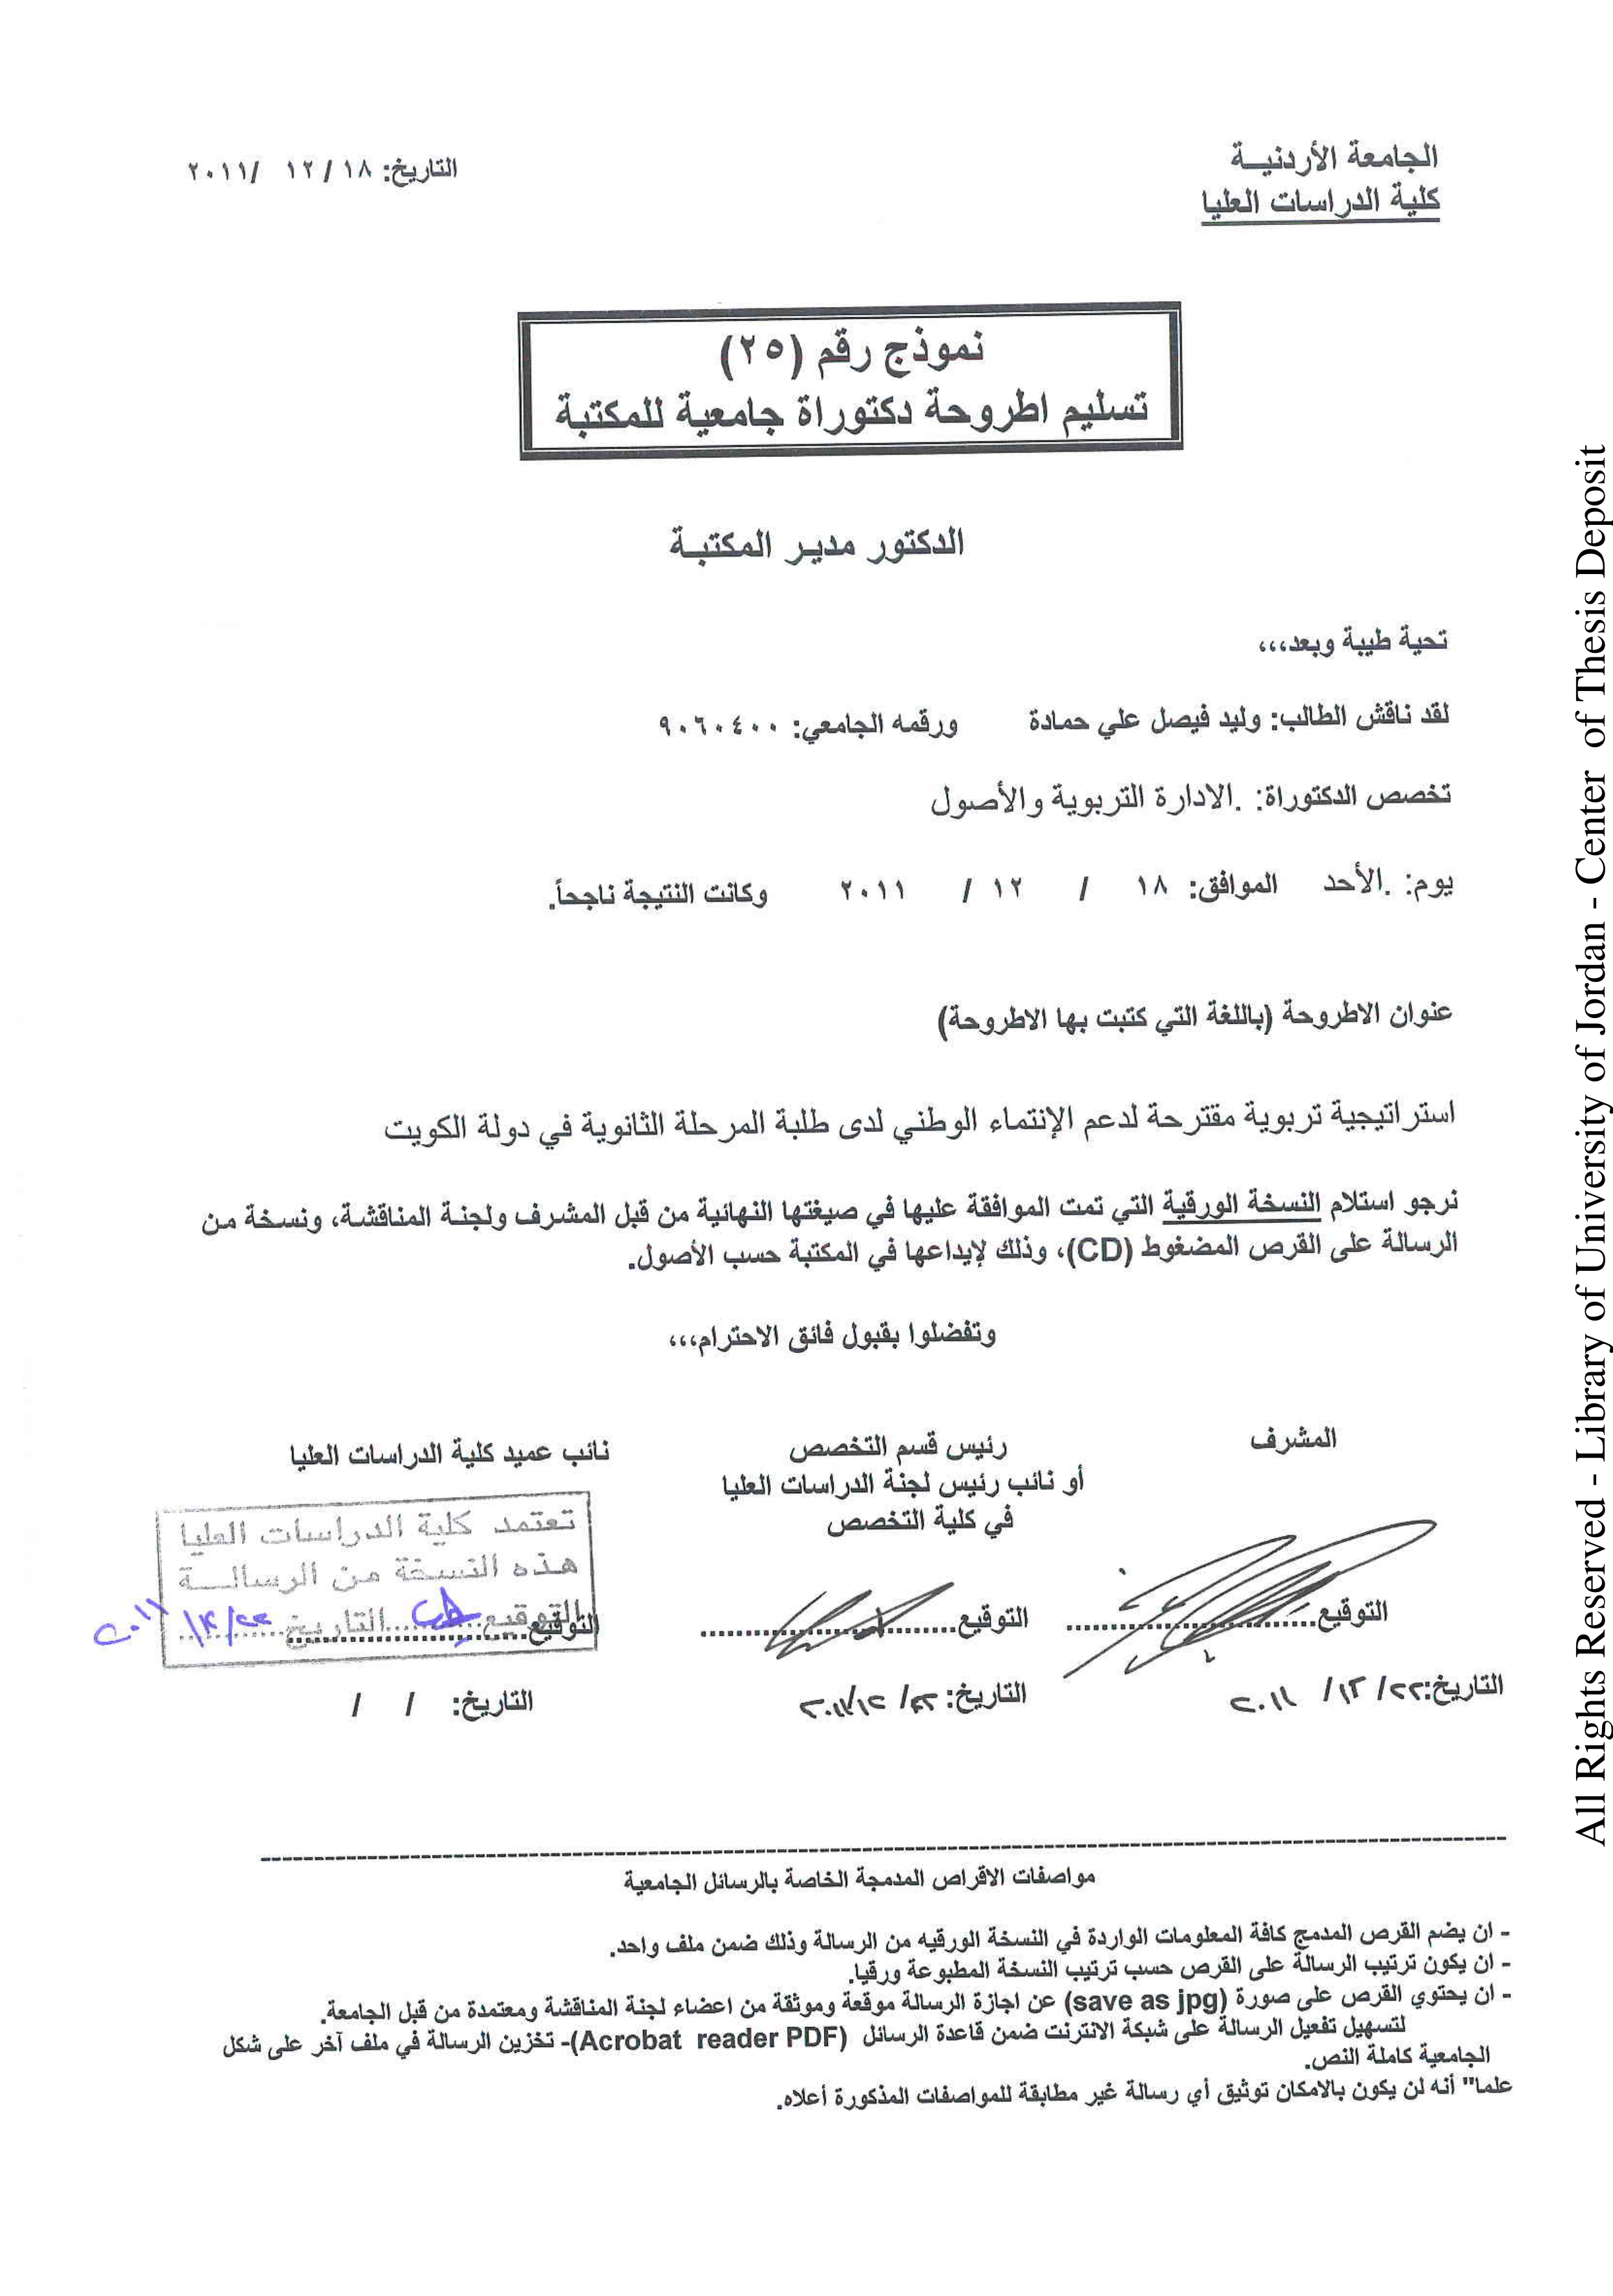 الجامعة الأردنيـة
كلية الدراسات العليا
التاريخ: ١٨ / ١٢ /٢٠١١
نموذج رقم (٢٥)
تسليم اطروحة دكتوراة جامعية للمكتبة
الدكتور مديـر المكتبـة
تحية طيبة وبعد،،،
لقد ناقش الطالب: وليد فيصل علي حمادة ورقمه الجامعي: ٩٠٦٠٤٠٠
تخصص الدكتوراة: .الادارة التربوية والأصول
يوم: .الأحد الموافق: ١٨ / ١٢ / ٢٠١١ وكانت النتيجة ناجحاً.
عنوان الاطروحة (باللغة التي كتبت بها الاطروحة)
استراتيجية تربوية مقترحة لدعم الإنتماء الوطني لدى طلبة المرحلة الثانوية في دولة الكويت
نرجو استلام النسخة الورقية التي تمت الموافقة عليها في صيغتها النهائية من قبل المشرف ولجنة المناقشة، ونسخة من
الرسالة على القرص المضغوط (CD)، وذلك لإيداعها في المكتبة حسب الأصول.
وتفضلوا بقبول فائق الاحترام،،،
المشرف
رئيس قسم التخصص
أو نائب رئيس لجنة الدراسات العليا
في كلية التخصص
نائب عميد كلية الدراسات العليا
تعتمد كلية الدراسات العليا
هذه النسخة من الرسالـــة
التوقيع............التاريخ............
التوقيع............................
التوقيع............................
التوقيع............................
التاريخ:٢٢/ ١٢/ ٢٠١١
التاريخ: /١٢/٢٠١١
التاريخ: / /
مواصفات الاقراص المدمجة الخاصة بالرسائل الجامعية
- ان يضم القرص المدمج كافة المعلومات الواردة في النسخة الورقيه من الرسالة وذلك ضمن ملف واحد.
- ان يكون ترتيب الرسالة على القرص حسب ترتيب النسخة المطبوعة ورقيا.
- ان يحتوي القرص على صورة (save as jpg) عن اجازة الرسالة موقعة وموثقة من اعضاء لجنة المناقشة ومعتمدة من قبل الجامعة.
لتسهيل تفعيل الرسالة على شبكة الانترنت ضمن قاعدة الرسائل (Acrobat reader PDF)- تخزين الرسالة في ملف آخر على شكل
الجامعية كاملة النص.
علما" أنه لن يكون بالامكان توثيق أي رسالة غير مطابقة للمواصفات المذكورة أعلاه.
All Rights Reserved - Library of University of Jordan - Center of Thesis Deposit